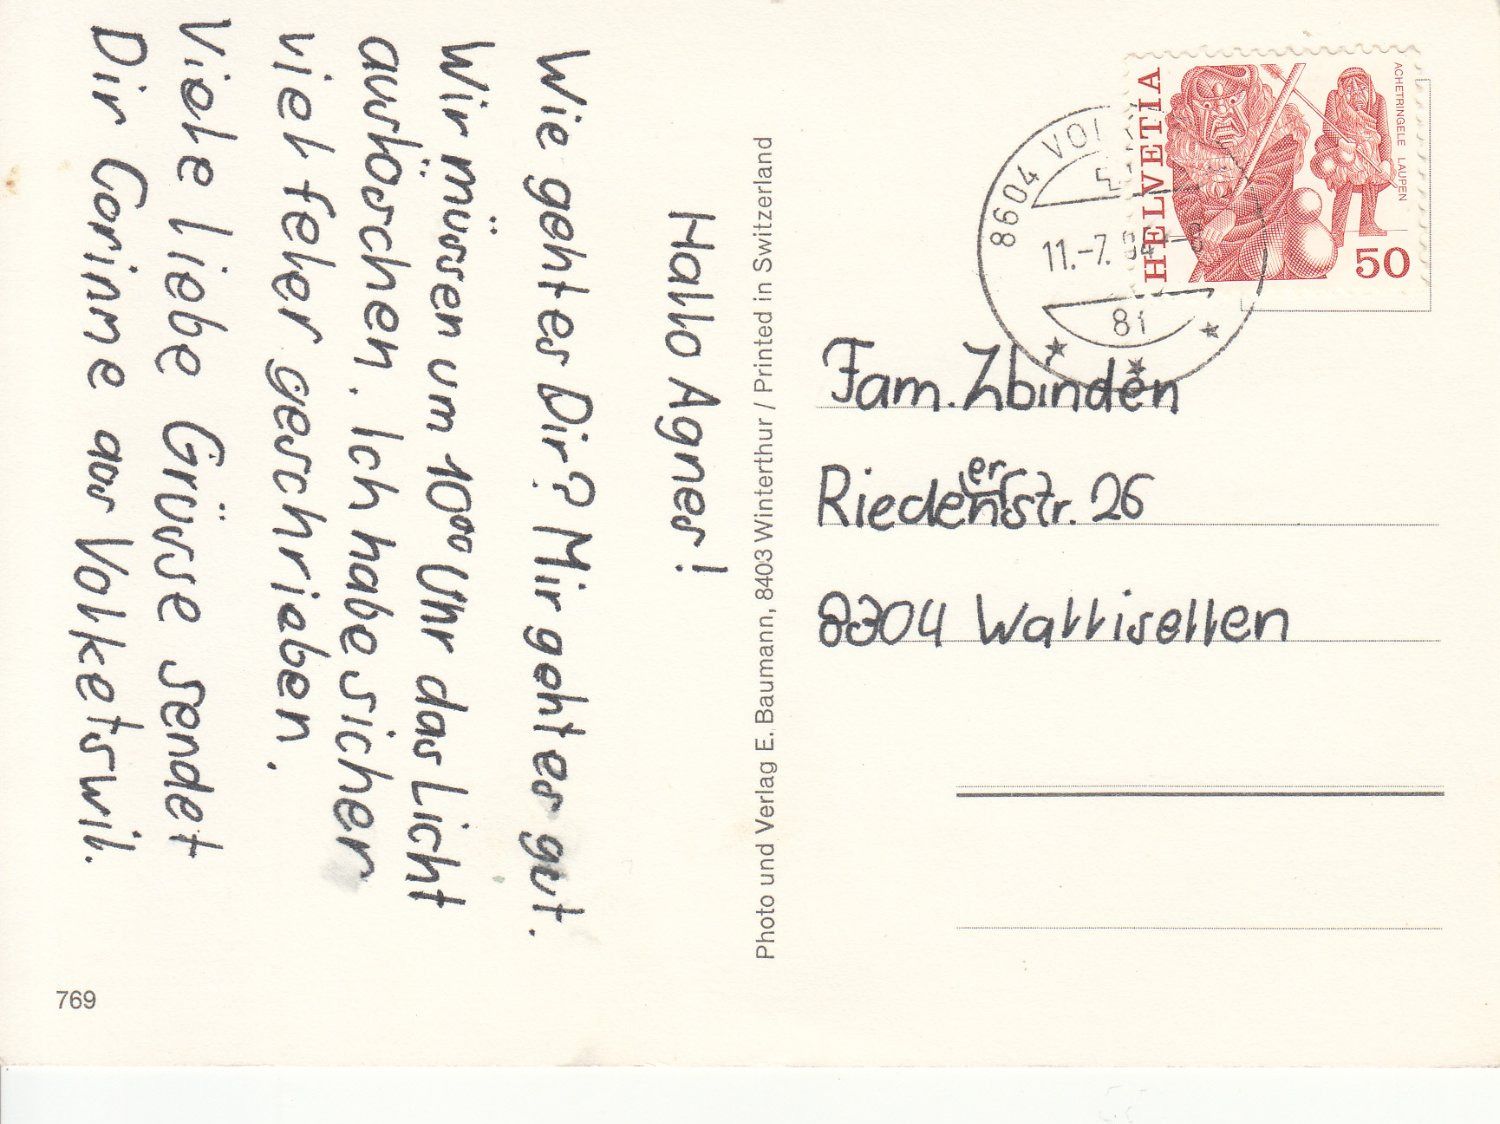 Hallo Agnes!
Wie geht es Dir? Mir geht es gut.
Wir müssen um 10⁰⁰ Uhr das Licht
auslöschen. Ich habe sicher
viel feler geschrieben.
Viele liebe Grüsse sendet
Dir Corinne aus Volketswil.
769
Photo und Verlag E. Baumann, 8403 Winterthur / Printed in Switzerland
HELVETIA
ACHETRINGELE LAUPEN
50
8604 VOL
11.-7. 84
8
81
Fam. Zbinden
er
Riedenstr. 26
8304 Wallisellen